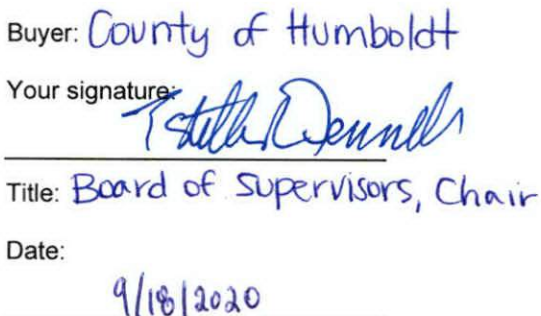 Buyer: County of Humboldt
Your signature:
Estelle Fennell
Title: Board of Supervisors, Chair
Date:
9/18/2020